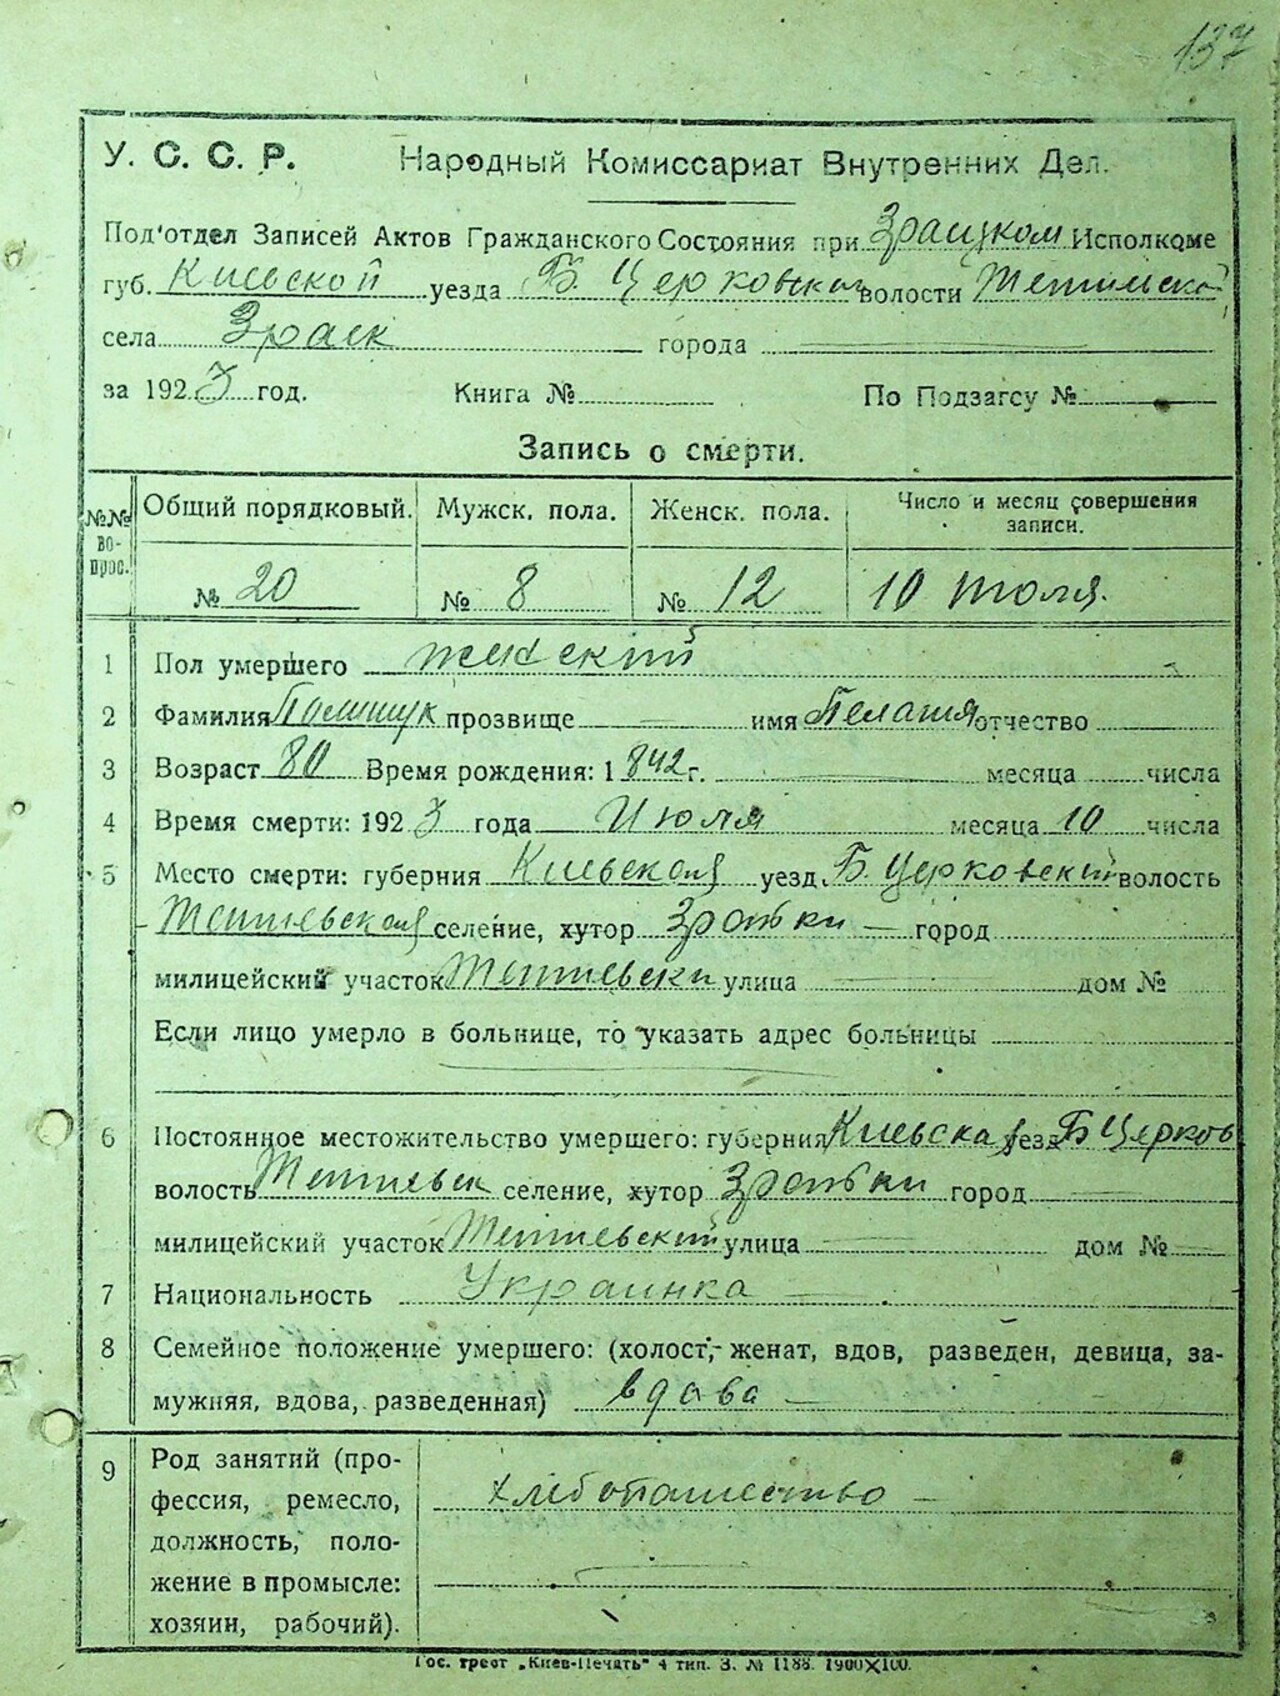 137
У. С. С. Р. Народный Комиссариат Внутренних Дел.
Под'отдел Записей Актов Гражданского Состояния при Зрайцком Исполкоме
губ. Киевской уезда Б. Церковской волости
села города
за 1923 год. Книга № По Подзагсу №
Запись о смерти.
№№ вопрос. Общий порядковый. Мужск. пола. Женск. пола. Число и месяц совершения записи.
№ 20 № 8 № 12 10 Июля.
1 Пол умершего женский
2 Фамилия Полищук прозвище — имя Пелагия отчество
3 Возраст 80 Время рождения: 1842 г. — месяца числа
4 Время смерти: 1923 года Июля месяца 10 числа
5 Место смерти: губерния Киевская уезд Б. Церковский волость
Тетиевская селение, хутор — город
милицейский участок Тетиевски улица — дом №
Если лицо умерло в больнице, то указать адрес больницы
6 Постоянное местожительство умершего: губерния Киевска уезд Б Церков
волость Тетиевск селение, хутор город —
милицейский участок Тетиевский улица — дом № —
7 Национальность Украинка —
8 Семейное положение умершего: (холост, женат, вдов, разведен, девица, за-
мужняя, вдова, разведенная) вдова —
9 Род занятий (про-
фессия, ремесло, хлебопашество —
должность, поло-
жение в промысле:
хозяин, рабочий).
Гос. трест „Киев-Печать" 4 тип. З. № 1188. 1900X100.